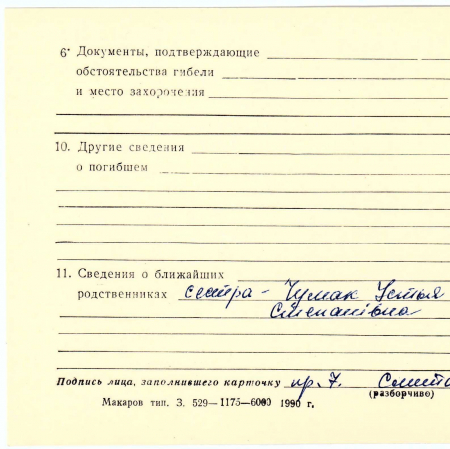 6· Документы, подтверждающие
обстоятельства гибели
и место захоронения
10. Другие сведения
о погибшем
11. Сведения о ближайших
родственниках сестра - Чумак Устья
Степанівна
Подпись лица, заполнившего карточку пр. 7.
(разборчиво)
Макаров тип. З. 529—1175—6000 1990 г.